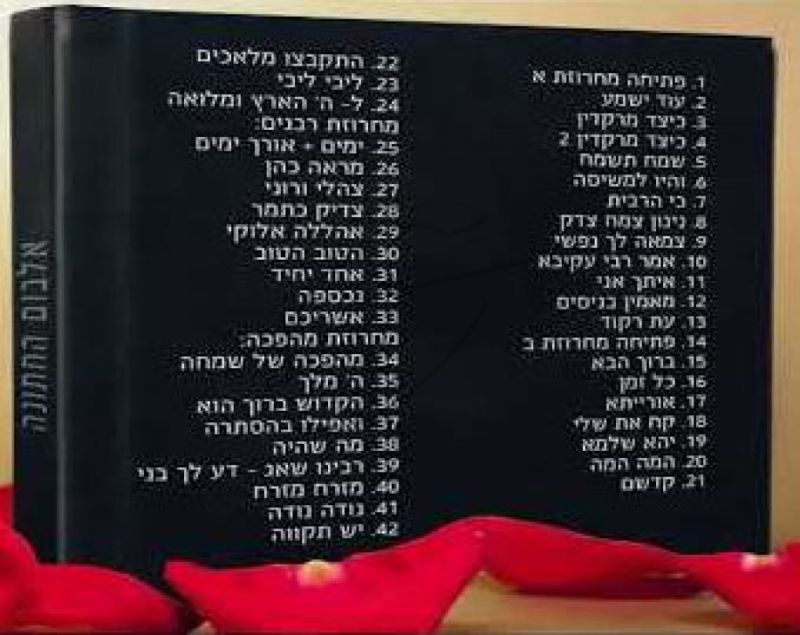 1. פתיחה מחרוזת א
2. עוד ישמע
3. כיצד מרקדין
4. כיצד מרקדין 2
5. שמח תשמח
6. והיו למשיסה
7. בי הרבית
8. ניגון צמח צדק
9. צמאה לך נפשי
10. אמר רבי עקיבא
11. איתך אני
12. מאמין בניסים
13. עת רקוד
14. פתיחה מחרוזת ב
15. ברוך הבא
16. כל זמן
17. אורייתא
18. קח את שלי
19. יהא שלמא
20. המה המה
21. קדשם
22. התקבצו מלאכים
23. ליבי ליבי
24. ל- ה' הארץ ומלואה
מחרוזת רבנים:
25. ימים + אורך ימים
26. מראה כהן
27. צהלי ורוני
28. צדיק כתמר
29. אהללה אלוקי
30. הטוב הטוב
31. אחד יחיד
32. נכספה
33. אשריכם
מחרוזת מהפכה:
34. מהפכה של שמחה
35. ה' מלך
36. הקדוש ברוך הוא
37. ואפילו בהסתרה
38. מה שהיה
39. רבינו שאג - דע לך בני
40. מזרח מזרח
41. נודה נודה
42. יש תקווה
אלבום החתונה